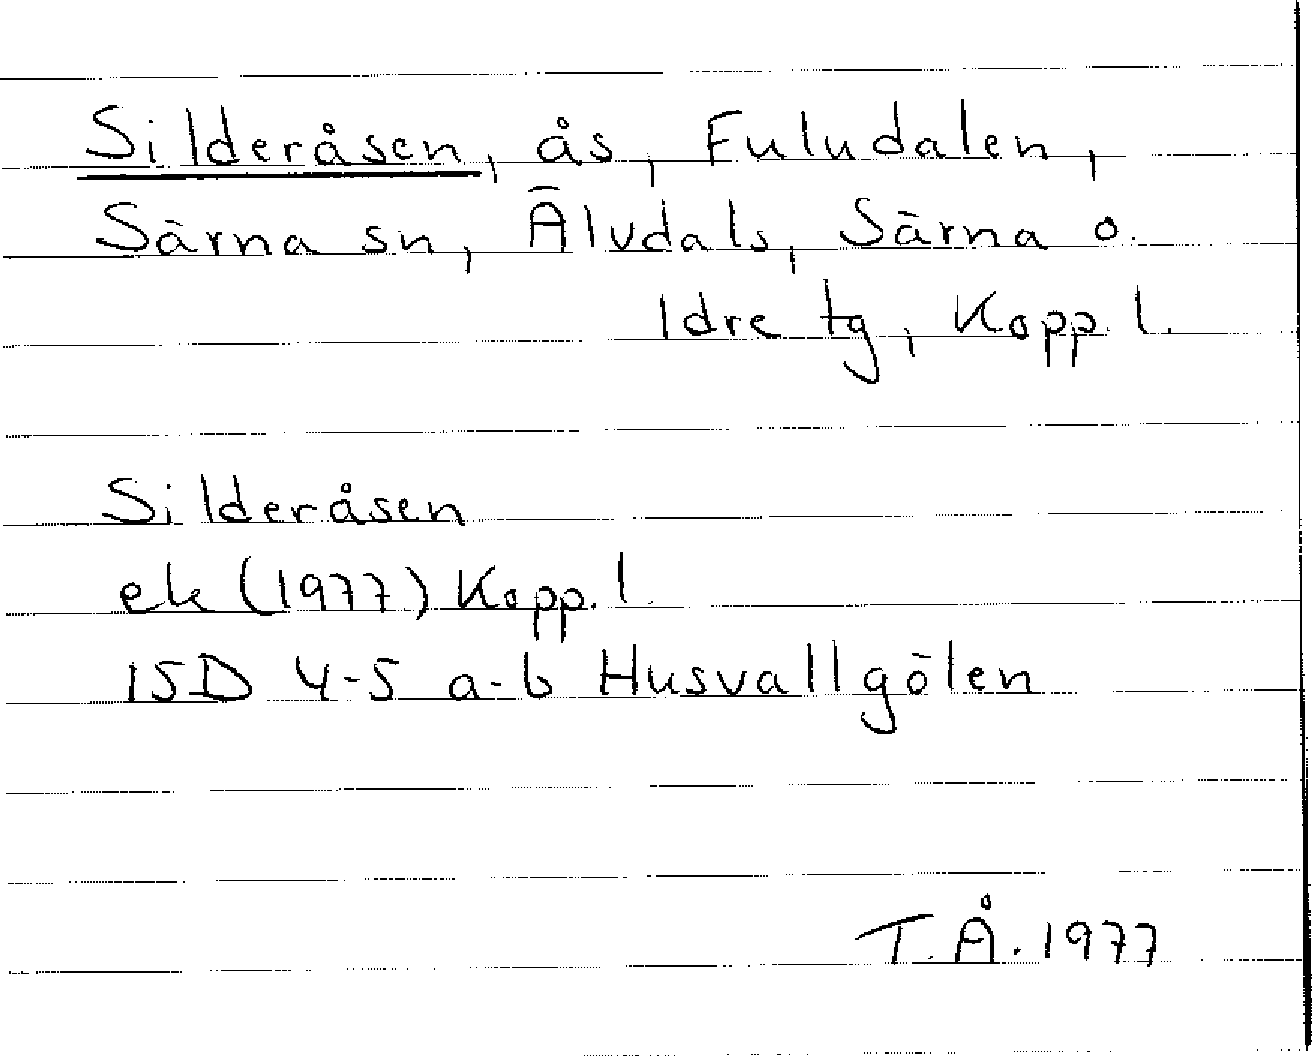 Silderåsen, ås, Fuludalen,
Särna sn, Älvdals, Särna o.
Idre tg, Kopp. l.
Silderåsen
ek (1977) Kopp. l.
15D 4-5 a-b Husvallgölen
T.Å. 1977